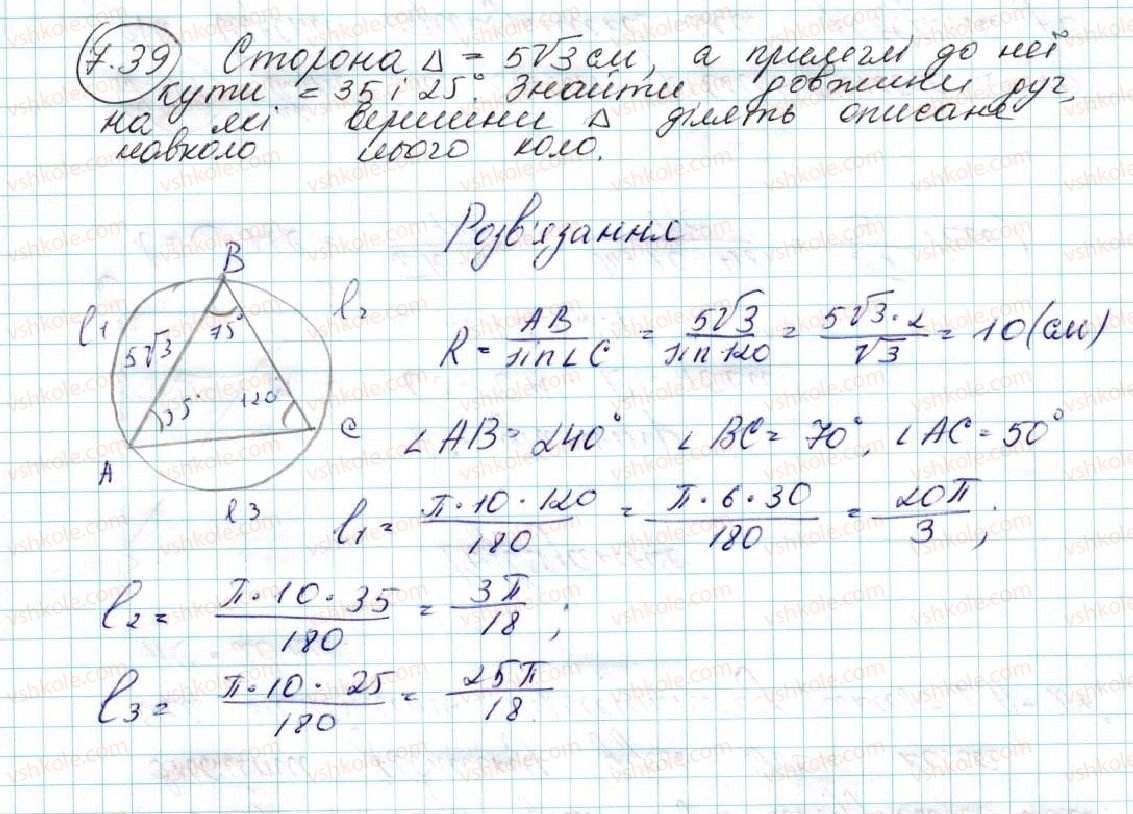 7.39 Сторона Δ = 5√3 см, а прилеглі до неї
кути = 35 і 25°. Знайти довжини дуг,
на які вершини Δ ділять описане
навколо нього коло.
Розв'язання
B
l1
l2
5√3
75°
35°
120
A
C
l3
R = AB / sin∠C = 5√3 / sin 120 = 5√3·2 / √3 = 10 (см)
∠AB = 240° ∠BC = 70°, ∠AC = 50°
l1 = π·10·120 / 180 = π·6·30 / 180 = 20π / 3 ;
l2 = π·10·35 / 180 = 3π / 18 ;
l3 = π·10·25 / 180 = 25π / 18
vshkole.com